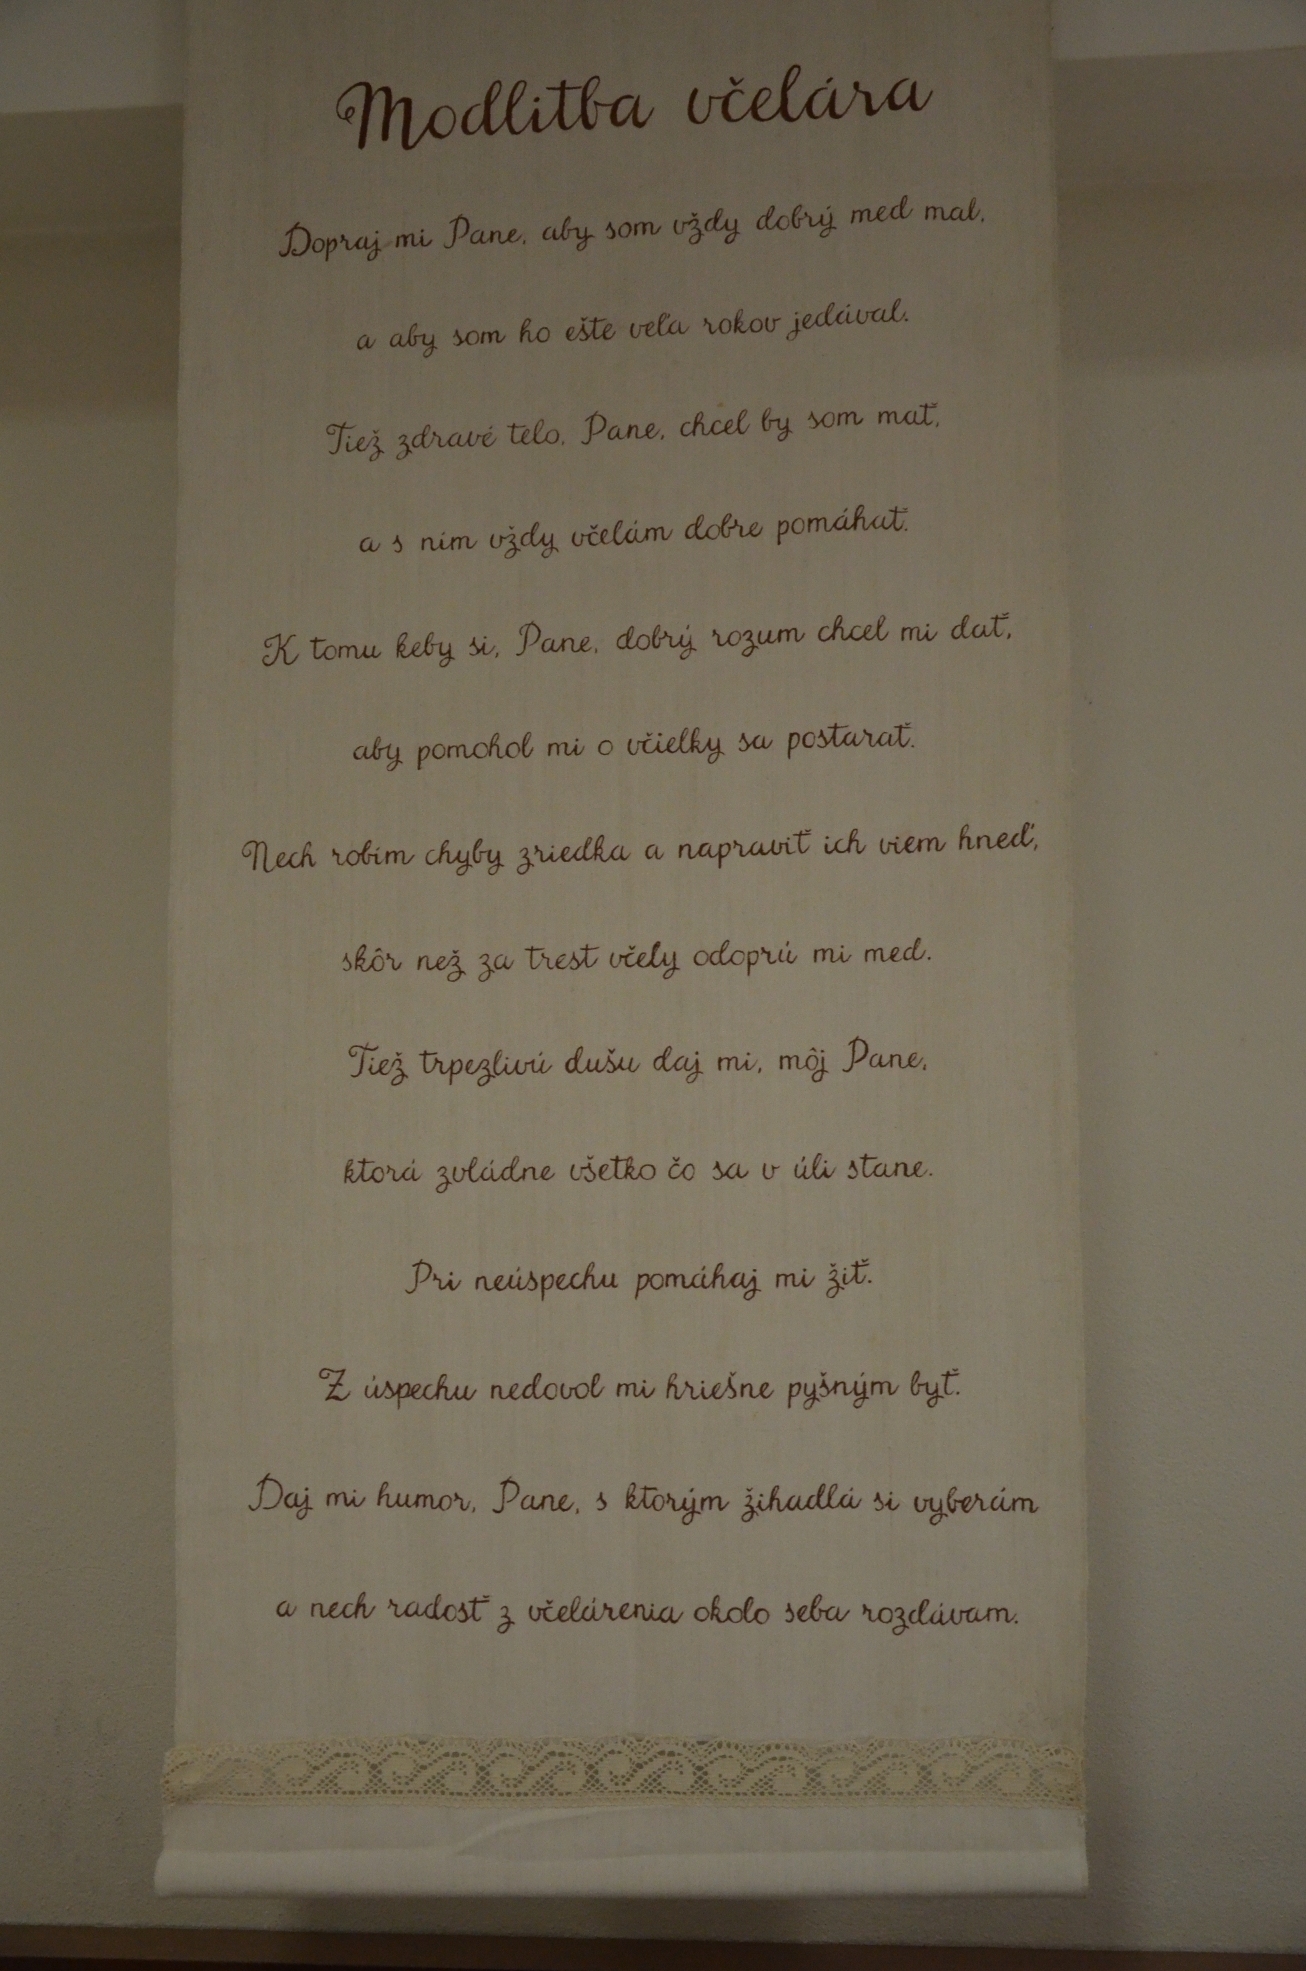 Modlitba včelára
Dopraj mi Pane, aby som vždy dobrý med mal,
a aby som ho ešte veľa rokov jedával.
Tiež zdravé telo, Pane, chcel by som mať,
a s ním vždy včelám dobre pomáhať.
K tomu keby si, Pane, dobrý rozum chcel mi dať,
aby pomohol mi o včielky sa postarať.
Nech robím chyby zriedka a napraviť ich viem hneď,
skôr než za trest včely odoprú mi med.
Tiež trpezlivú dušu daj mi, môj Pane,
ktorá zvládne všetko čo sa v úli stane.
Pri neúspechu pomáhaj mi žiť.
Z úspechu nedovol mi hriešne pyšným byť.
Daj mi humor, Pane, s ktorým žihadlá si vyberám
a nech radosť z včelárenia okolo seba rozdávam.